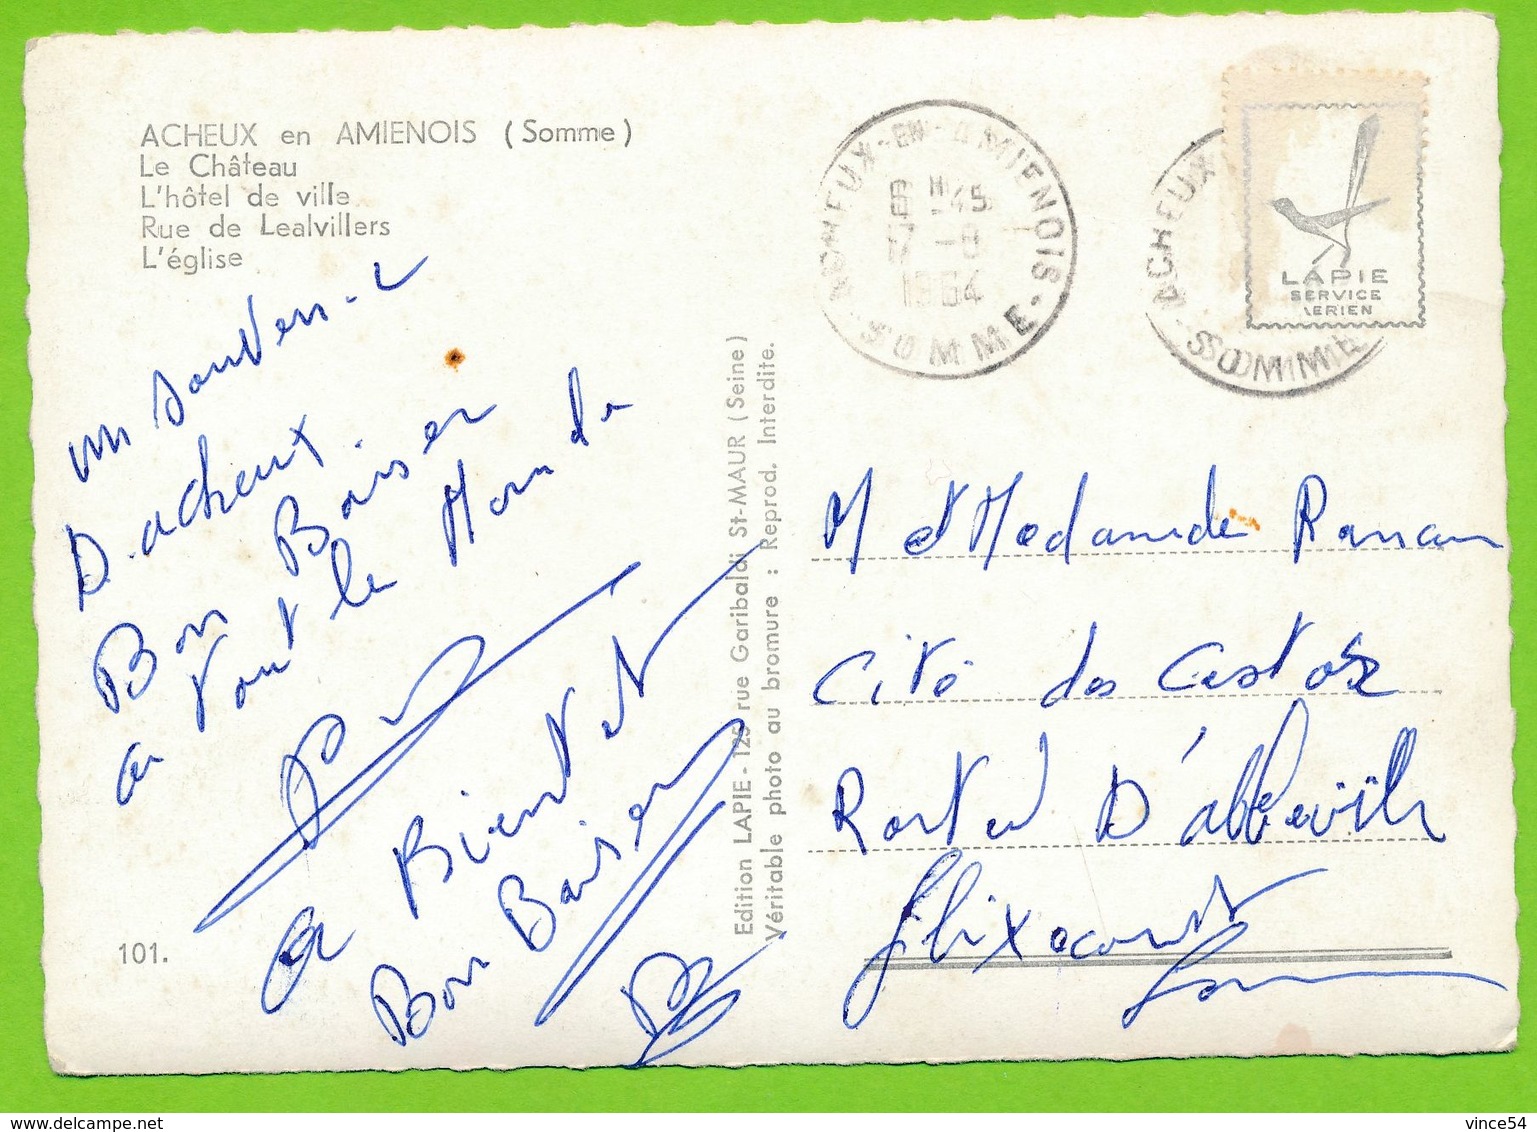 ACHEUX en AMIENOIS (Somme)
Le Château
L'hôtel de ville
Rue de Lealvillers
L'église
un souvenir
D'acheux
Bon Baiser
a tout le Monde
a Bientot
Bon Baiser
101.
Edition LAPIE - 125 rue Garibaldi St-MAUR (Seine)
Véritable photo au bromure : Reprod. Interdite.
ACHEUX-EN-AMIENOIS
6 H 45
17 -8
1964
- SOMME -
ACHEUX
- SOMME
LAPIE
SERVICE
AERIEN
M et Madame
Cité des Castors
Route D'abbeville
flixecourt
Somme
vince54